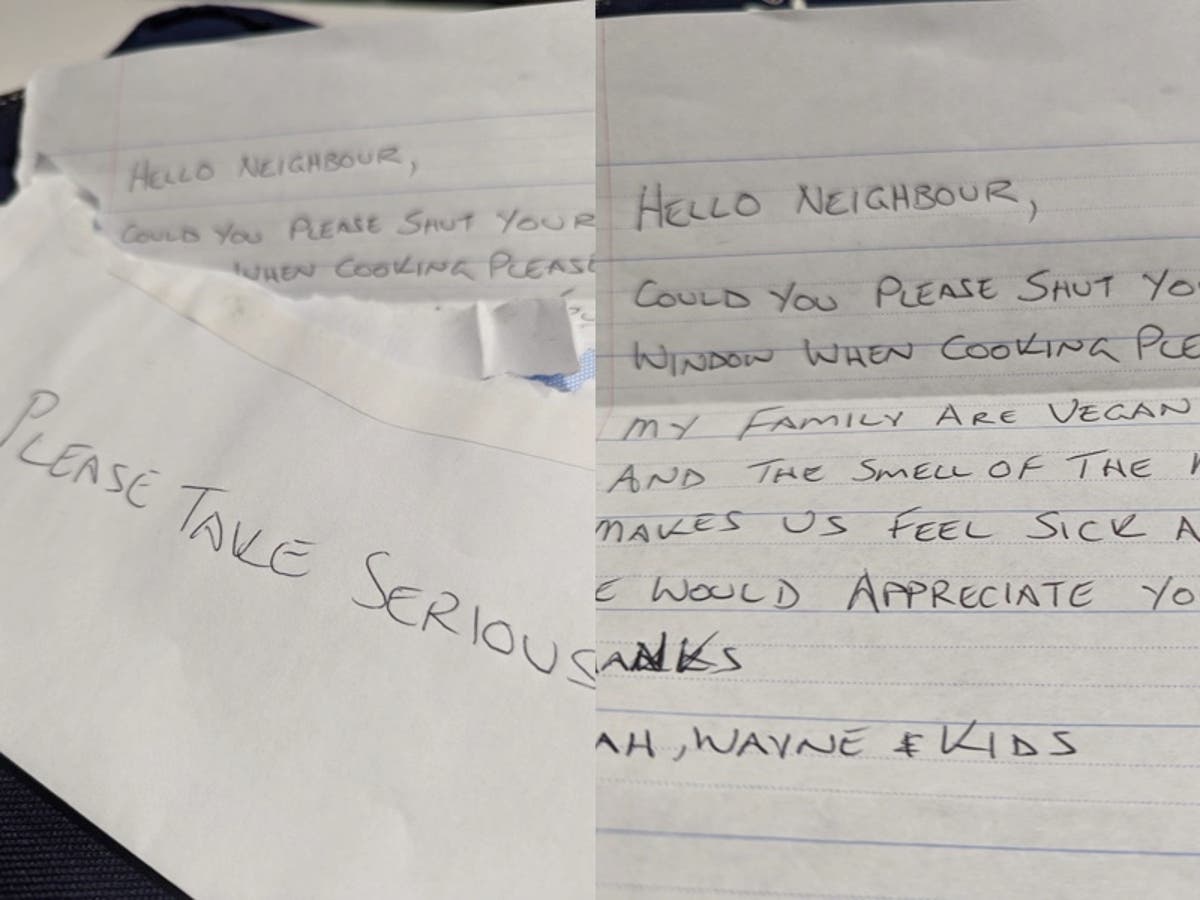 HELLO NEIGHBOUR,
COULD YOU PLEASE SHUT YOUR
WHEN COOKING PLEASE
PLEASE TAKE SERIOUS
HELLO NEIGHBOUR,
COULD YOU PLEASE SHUT YO
WINDOW WHEN COOKING PLE
MY FAMILY ARE VEGAN
AND THE SMELL OF THE
MAKES US FEEL SICK A
E WOULD APPRECIATE YO
ANKS
AH, WAYNE & KIDS